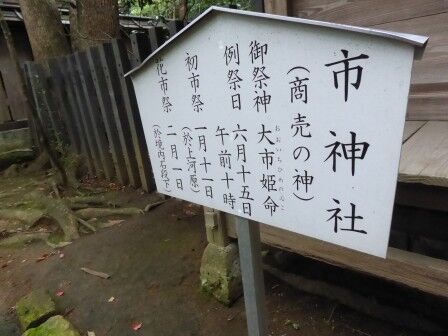 市神社
(商売の神)
御祭神 大市姫命
例祭日 六月十五日
午前十時
初市祭 一月十一日
(於上河原)
花市祭 二月一日
(於境内石段下)